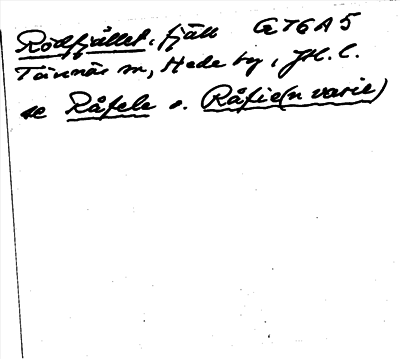 Rödfjället, fjäll G76A5
Tännäs sn, Hede tg, Jtl. l.
se Råfele o. Råfie(n varie)